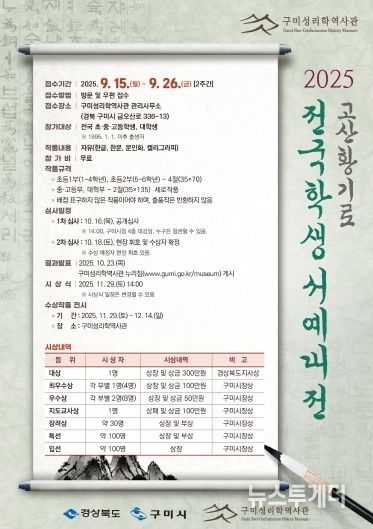 구미성리학역사관
Gumi Neo-Confucianism History Museum
2025
고산황기로
전국학생서예대전
접수기간 | 2025. 9. 15.(월) ~ 9. 26.(금) [2주간]
접수방법 | 방문 및 우편 접수
접수장소 | 구미성리학역사관 관리사무소
(경북 구미시 금오산로 336-13)
참가대상 | 전국 초·중·고등학생, 대학생
※ 1995. 1. 1. 이후 출생자
작품내용 | 자유(한글, 한문, 문인화, 캘리그라피)
참 가 비 | 무료
작품규격
초등1부(1~4학년), 초등2부(5~6학년) - 4절(35×70)
중·고등부, 대학부 - 2절(35×135) 세로작품
배접·표구하지 않은 작품이어야 하며, 출품작은 반환하지 않음
심사일정
1차 심사 : 10. 16.(목), 공개심사
※ 14:00, 구미시청 4층 대강당, 누구든 참관할 수 있음.
2차 심사 : 10. 18.(토), 현장 휘호 및 수상자 확정
※ 수상 예정자 현장 휘호 있음.
결과발표 | 2025. 10. 23.(목)
구미성리학역사관 누리집(www.gumi.go.kr/museum) 게시
시 상 식 | 2025. 11. 29.(토) 14:00
※ 시상식 일정은 변경될 수 있음
수상작품 전시
기 간 : 2025. 11. 29.(토) ~ 12. 14.(일)
장 소 : 구미성리학역사관
시상내역
등 위 시 상 자 시상내역 비 고
대상 1명 상장 및 상금 300만원 경상북도지사상
최우수상 각 부별 1명(4명) 상장 및 상금 100만원 구미시장상
우수상 각 부별 2명(8명) 상장 및 상금 50만원 구미시장상
지도교사상 1명 상패 및 상금 100만원 구미시장상
장려상 약 30명 상장 및 부상 구미시장상
특선 약 100명 상장 및 부상 구미시장상
입선 약 100명 상장 구미시장상
경상북도
구미시
구미성리학역사관
Gumi Neo-Confucianism History Museum
뉴스투게더